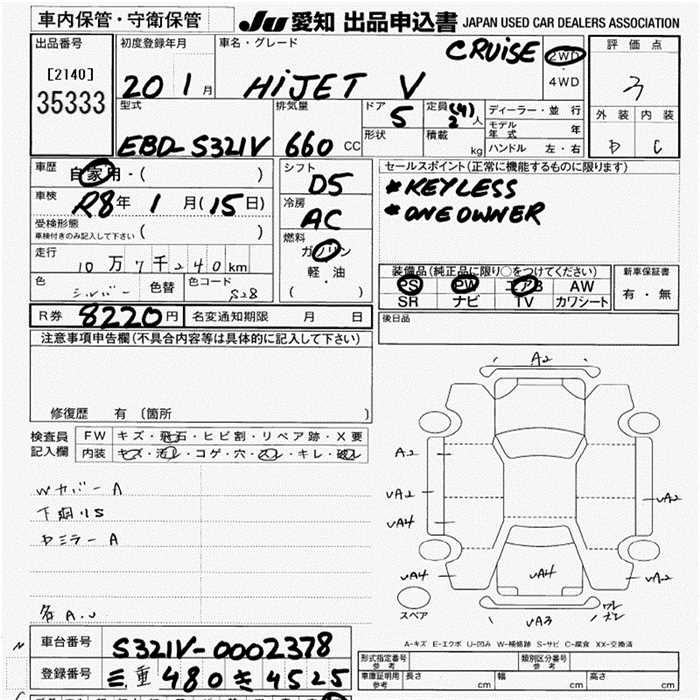 車内保管・守衛保管
Ju 愛知 出品申込書 JAPAN USED CAR DEALERS ASSOCIATION
出品番号
[2140]
35333
初度登録年月
20 1月
車名・グレード
CRUISE
HiJET V
2WD
4WD
評価点
3
外装 内装
D C
型式
EBD-S321V
排気量
660 CC
ドア
5
形状
定員 (4) 2人
積載 kg
ディーラー・並行
モデル年式 年
ハンドル 左・右
車歴
自家用・( )
車検
R8年 1月(15日)
受検形態
車検付きのみ記入して下さい ( )
走行
10万7千240km
色 シルバー 色替 色コード S28
シフト
D5
冷房
AC
燃料
ガソリン
軽・油
( )
セールスポイント(正常に機能するものに限ります)
*KEYLESS
*ONE OWNER
装備品(純正品に限り○をつけてください)
PS PW エアB AW
SR ナビ TV カワシート
新車保証書
有・無
R券 8220円 名変通知期限 月 日
後日品
注意事項申告欄(不具合内容等は具体的に記入して下さい)
修復歴 有 〔箇所 〕
検査員記入欄
FW キズ・飛石・ヒビ割・リペア跡・X要
内装 キズ・汚レ・コゲ・穴・スレ・キレ・破レ
Wカバー A
下廻りS
Dミラー A
A2
A2
UA2
UA4
UA4
UA4
UA2
UA2
UA3
スペア
A-キズ E-エクボ U-凹み W-補修跡 S-サビ C-腐食 XX-交換済
車台番号 S321V-0002378
登録番号 三重 480 き 4525
形式指定番号 参考
類別区分番号 参考
車庫証明用 参考 長さ cm 幅 cm 高さ cm